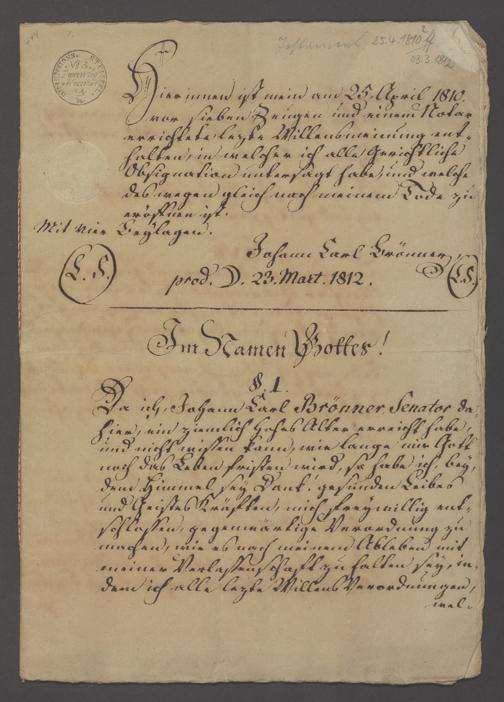 Testament 25.4.1810
03.3.1812
No 3.
Hierinnen ist mein am 25. April 1810.
vor sieben Zeugen und einem Notar
errichtete lezte Willensmeinung ent-
halten, in welcher ich alle Gerichtliche
Obsignation untersagt habe, und welche
des wegen gleich nach meinem Tode zu
eröffnen ist.
Mit vier Beylagen.
Johann Carl Brönner
L. S.
prod. D. 23. Mart. 1812.
L. S.
Im Namen Gottes!
§. 1.
Da ich, Johann Carl Brönner Senator da-
hier, ein ziemlich hohes Alter erreicht habe,
und nicht wissen kann, wie lange mir Gott
noch das Leben fristen wird, so habe ich, bey,
dem Himmel sey Dank! gesunden Leibes
und Geistes Kräften, mich freywillig ent-
schlossen, gegenwärtige Verordnung zu
machen, wie es nach meinem Ableben mit
meiner Verlassenschaft zu halten sey, in-
dem ich alle lezte Willens Verordnungen,
wel-